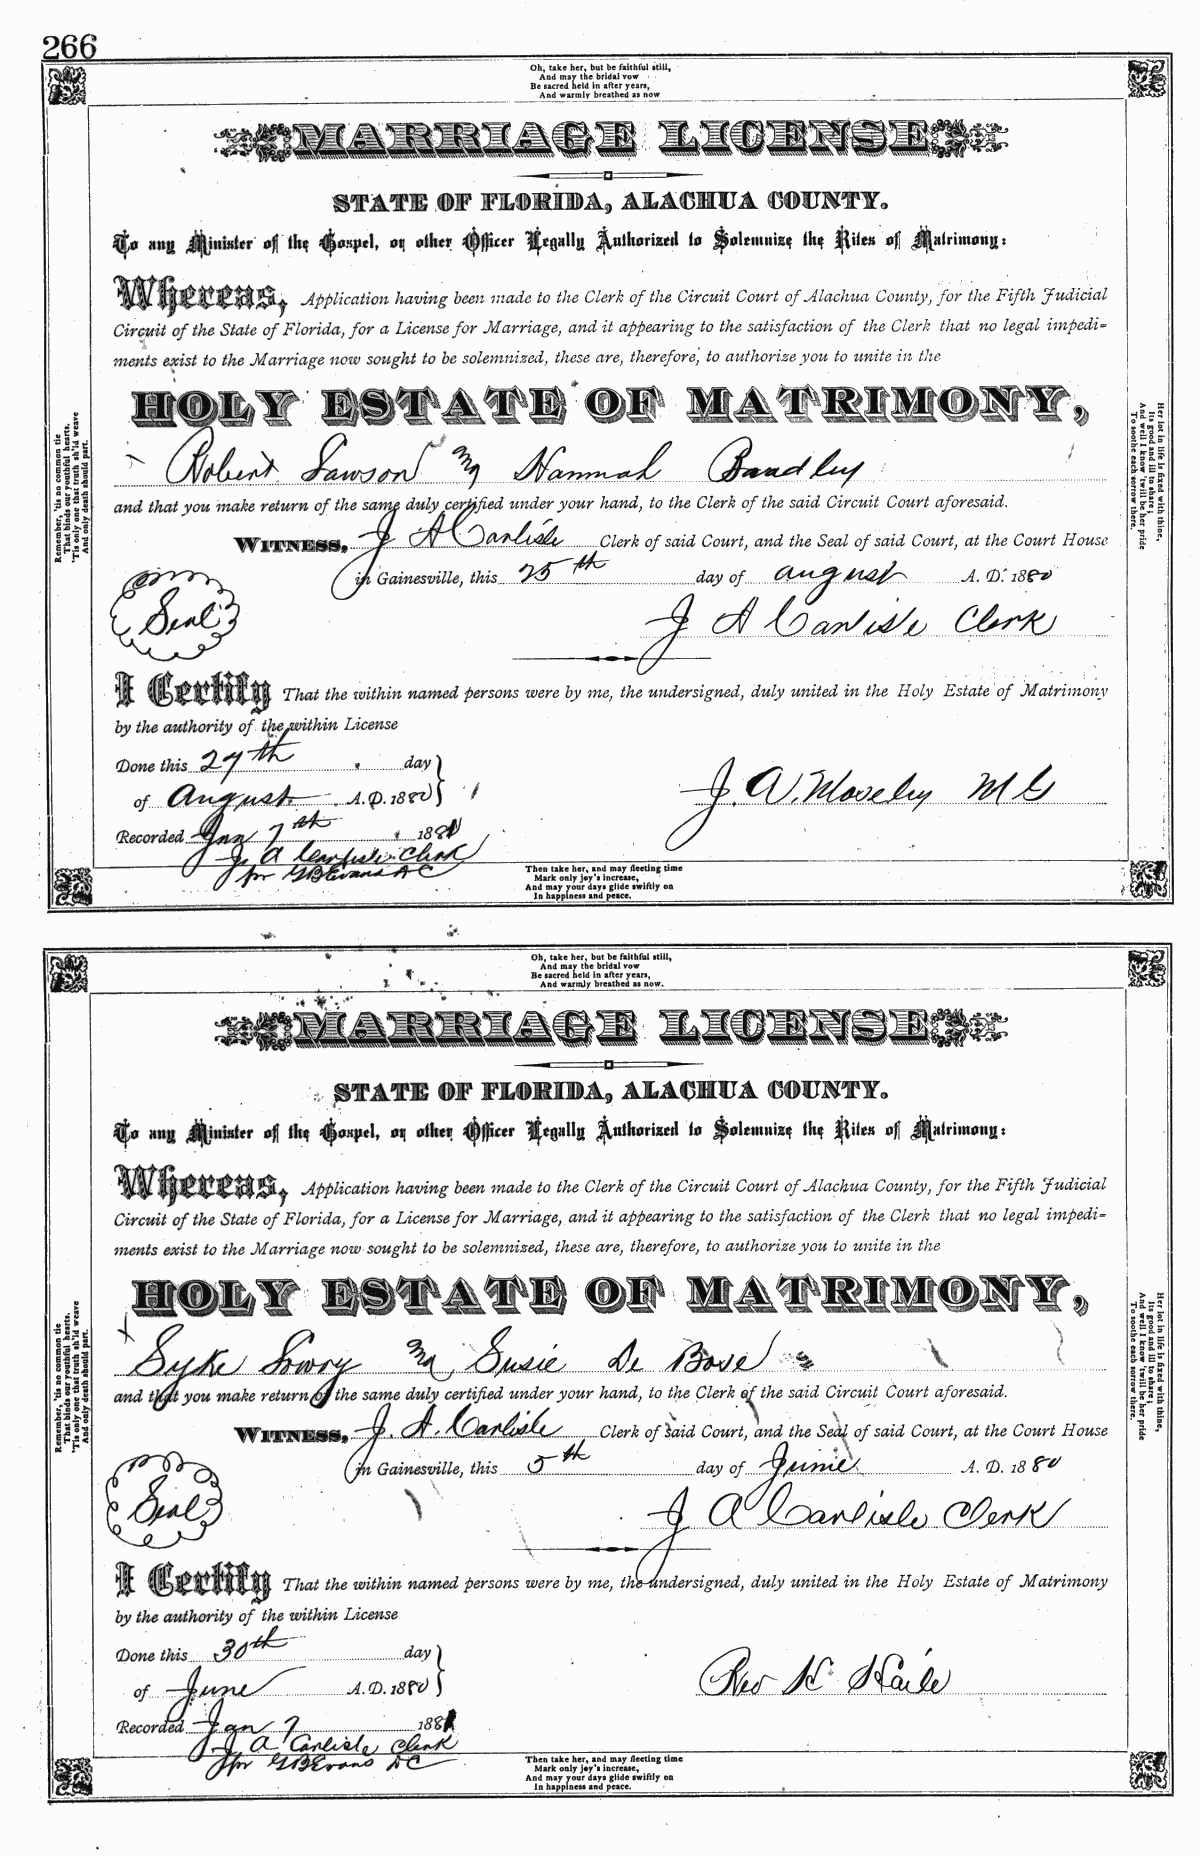 266
Oh, take her, but be faithful still,
And may the bridal vow
Be sacred held in after years,
And warmly breathed as now
MARRIAGE LICENSE
STATE OF FLORIDA, ALACHUA COUNTY.
To any Minister of the Gospel, or other Officer Legally Authorized to Solemnize the Rites of Matrimony:
Whereas, Application having been made to the Clerk of the Circuit Court of Alachua County, for the Fifth Judicial
Circuit of the State of Florida, for a License for Marriage, and it appearing to the satisfaction of the Clerk that no legal impedi=
ments exist to the Marriage now sought to be solemnized, these are, therefore, to authorize you to unite in the
HOLY ESTATE OF MATRIMONY,
Robert Lawson and Hannah Bradley
and that you make return of the same duly certified under your hand, to the Clerk of the said Circuit Court aforesaid.
WITNESS, J A Carlisle Clerk of said Court, and the Seal of said Court, at the Court House
in Gainesville, this 25th day of august A. D. 1880
Seal
J A Carlisle Clerk
I Certify That the within named persons were by me, the undersigned, duly united in the Holy Estate of Matrimony
by the authority of the within License
Done this 27th day
of August A. D. 1880
J. A. Moseley M G
Recorded Jan 7th 1881
J. A Carlisle Clerk
for G B Evans D C
Remember, 'tis no common tie
That binds our youthful hearts,
'Tis only one that truth sh'ld weave
And only death should part.
Her lot in life is fixed with thine,
Its good and ill to share;
And well I know 'twill be her pride
To soothe each sorrow there.
Then take her, and may fleeting time
Mark only joy's increase,
And may your days glide swiftly on
In happiness and peace.
Oh, take her, but be faithful still,
And may the bridal vow
Be sacred held in after years,
And warmly breathed as now.
MARRIAGE LICENSE
STATE OF FLORIDA, ALACHUA COUNTY.
To any Minister of the Gospel, or other Officer Legally Authorized to Solemnize the Rites of Matrimony:
Whereas, Application having been made to the Clerk of the Circuit Court of Alachua County, for the Fifth Judicial
Circuit of the State of Florida, for a License for Marriage, and it appearing to the satisfaction of the Clerk that no legal impedi=
ments exist to the Marriage now sought to be solemnized, these are, therefore, to authorize you to unite in the
HOLY ESTATE OF MATRIMONY,
Syke Lowry and Susie De Bose
and that you make return of the same duly certified under your hand, to the Clerk of the said Circuit Court aforesaid.
WITNESS, J. A. Carlisle Clerk of said Court, and the Seal of said Court, at the Court House
in Gainesville, this 5th day of June A. D. 1880
Seal
J A Carlisle Clerk
I Certify That the within named persons were by me, the undersigned, duly united in the Holy Estate of Matrimony
by the authority of the within License
Done this 30th day
of June A. D. 1880
Rev H. Haile
Recorded Jan 7 1881
J A Carlisle Clerk
for G B Evans D C
Remember, 'tis no common tie
That binds our youthful hearts,
'Tis only one that truth sh'ld weave
And only death should part.
Her lot in life is fixed with thine,
Its good and ill to share;
And well I know 'twill be her pride
To soothe each sorrow there.
Then take her, and may fleeting time
Mark only joy's increase,
And may your days glide swiftly on
In happiness and peace.